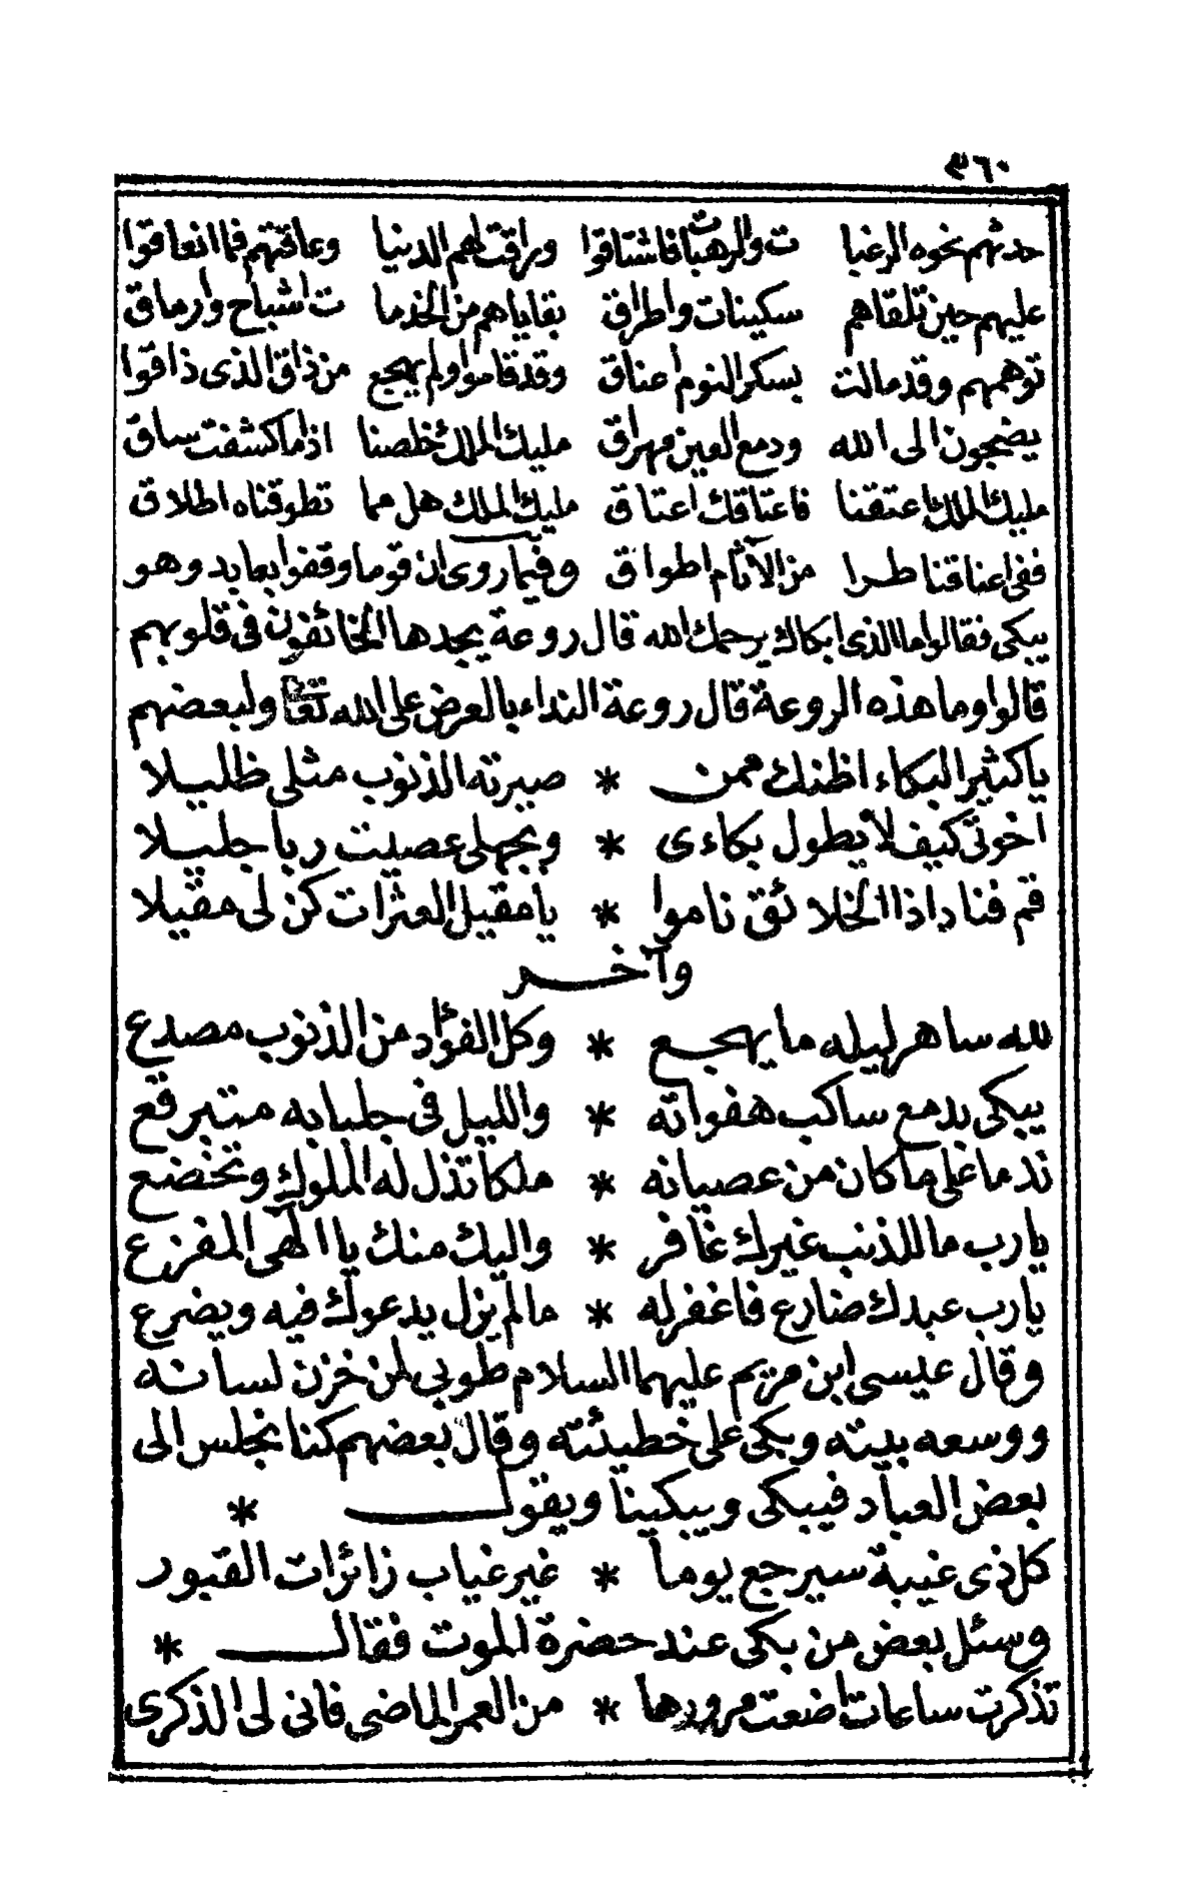 ٣٦٠
حدثهم نحوه الرغبا ت والرهبات فاشتاقوا وراقت لهم الدنيا وعاقتهم فما انعاقوا
عليهم حين تلقاهم سكينات واطراق بقاياهم من الخدما ت اشباح وارماق
توهمهم وقد مالت بسكر النوم اعناق وقد قاموا ولم يهجع من ذاق الذى ذاقوا
يضجون الى الله ودمع العين مهراق مليك الملك خلصنا اذا ما كشفت ساق
مليك الملك اعتقنا فاعتاقك اعتاق مليك الملك هل مما تطوقناه اطلاق
ففى اعناقنا طرا من الآثام اطواق وفيما روى ان قوما وقفوا بعابد وهو
يبكى فقالوا ما الذى ابكاك يرحمك الله قال روعة يجدها الخائفون فى قلوبهم
قالوا وما هذه الروعة قال روعة النداء بالعرض على الله تعا ولبعضهم
يا كثير البكاء اظنك ممن * صيرته الذنوب مثلى ظليلا
اخوتى كيف لا يطول بكاءى * وبجهلى عصيت ربا جليلا
قم فناد اذا الخلائق ناموا * يا مقيل العثرات كن لى مقيلا
وآخر
لله ساهر ليله ما يهجع * وكل الفؤاد من الذنوب مصدع
يبكى بدمع ساكب هفواته * والليل فى جلبابه متبرقع
ندما على ما كان من عصيانه * ملكا تذل له الملوك وتخضع
يا رب ما للذنب غيرك غافر * واليك منك يا الهى المفزع
يا رب عبدك ضارع فاغفر له * ما لم يزل يدعوك فيه ويضرع
وقال عيسى ابن مريم عليهما السلام طوبى لمن خزن لسانه
ووسعه بيته وبكى على خطيئته وقال بعضهم كنا نجلس الى
بعض العباد فيبكى ويبكينا ويقول *
كل ذى غيبة سيرجع يوما * غير غياب زائرات القبور
وسئل بعض من بكى عند حضرة الموت فقال *
تذكرت ساعات اضعت مرورها * من العمر الماضى فانى لى الذكرى